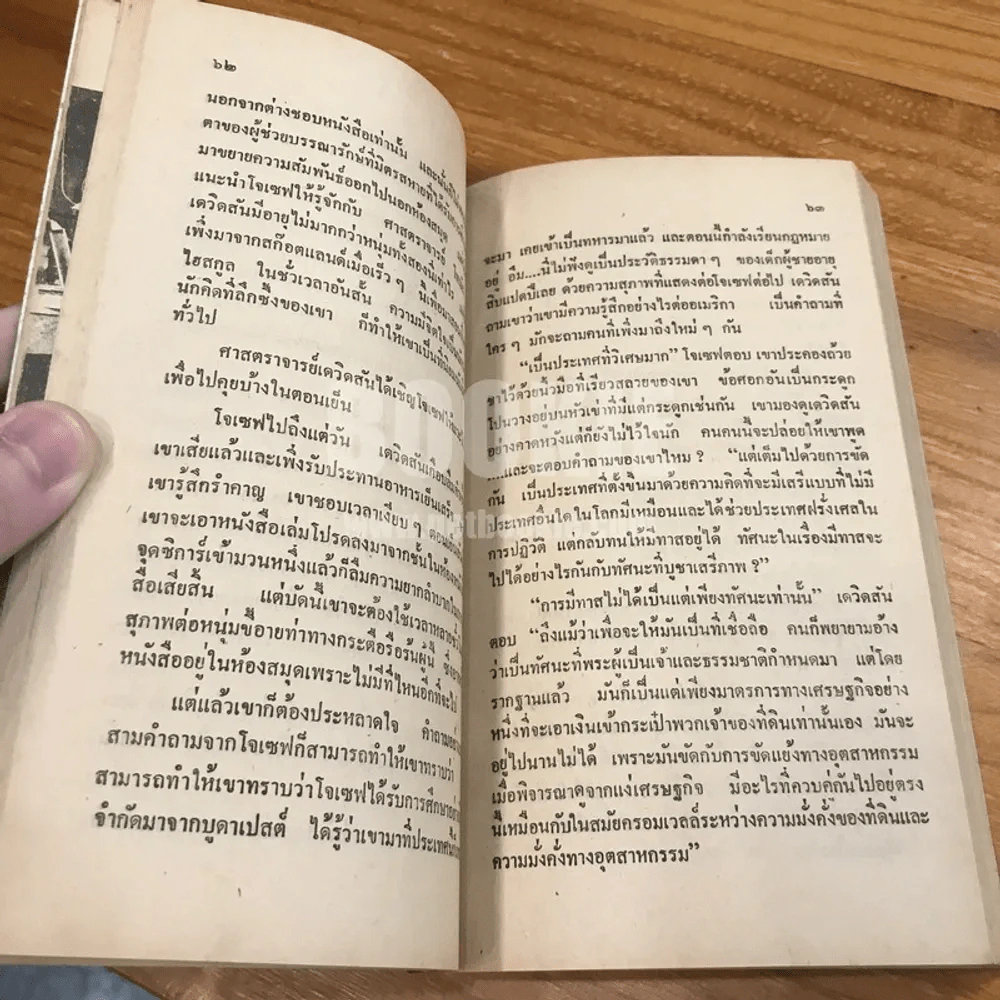 ๖๒
นอกจากต่างชอบหนังสือเท่านั้น และนั่นก็
ตาของผู้ช่วยบรรณารักษ์ที่มิตรสหายที่ได้รับ
มาขยายความสัมพันธ์ออกไปนอกห้องสมุด
แนะนำโจเซฟให้รู้จักกับ ศาสตราจารย์
เดวิดสันมีอายุไม่มากกว่าหนุ่มทั้งสองนี้เท่าไร
เพิ่งมาจากสก๊อตแลนด์เมื่อเร็ว ๆ นี้เพื่อมาสอน
ไฮสกูล ในชั่วเวลาอันสั้น ความมีจิตใจ
นักคิดที่ลึกซึ้งของเขา ก็ทำให้เขาเป็นที่
ทั่วไป
ศาสตราจารย์เดวิดสันได้เชิญโจเซฟ
เพื่อไปคุยบ้างในตอนเย็น
โจเซฟไปถึงแต่วัน เดวิดสันเกือบลืม
เขาเสียแล้วและเพิ่งรับประทานอาหารเย็นเสร็จ
เขารู้สึกรำคาญ เขาชอบเวลาเงียบ ๆ ตอน
เขาจะเอาหนังสือเล่มโปรดลงมาจากชั้นในห้อง
จุดซิการ์เข้ามวนหนึ่งแล้วก็ลืมความยากลำบากใน
สื้อเสียสิ้น แต่บัดนี้เขาจะต้องใช้เวลาหลายชั่ว
สุภาพต่อหนุ่มขี้อายท่าทางกระตือรือร้นผู้นี้ ซึ่ง
หนังสืออยู่ในห้องสมุดเพราะไม่มีที่ไหนอีกที่จะไป
แต่แล้วเขาก็ต้องประหลาดใจ คำถาม
สามคำถามจากโจเซฟก็สามารถทำให้เขาทราบว่า
สามารถทำให้เขาทราบว่าโจเซฟได้รับการศึกษา
จำกัดมาจากบูดาเปสต์ ได้รู้ว่าเขามาที่ประเทศนี้
๖๓
จะมา เคยเข้าเป็นทหารมาแล้ว และตอนนี้กำลังเรียนกฎหมาย
อยู่ อืม....นี่ไม่ฟังดูเป็นประวัติธรรมดา ๆ ของเด็กผู้ชายอายุ
สิบแปดปีเลย ด้วยความสุภาพที่แสดงต่อโจเซฟต่อไป เดวิดสัน
ถามเขาว่าเขามีความรู้สึกอย่างไรต่ออเมริกา เป็นคำถามที่
ใคร ๆ มักจะถามคนที่เพิ่งมาถึงใหม่ ๆ กัน
“เป็นประเทศที่วิเศษมาก” โจเซฟตอบ เขาประคองถ้วย
ชาไว้ด้วยนิ้วมือที่เรียวสลวยของเขา ข้อศอกอันเป็นกระดูก
โปนวางอยู่บนหัวเข่าที่มีแต่กระดูกเช่นกัน เขามองดูเดวิดสัน
อย่างคาดหวังแต่ก็ยังไม่ไว้ใจนัก คนคนนี้จะปล่อยให้เขาพูด
....และจะตอบคำถามของเขาไหม ? “แต่เต็มไปด้วยการขัด
กัน เป็นประเทศที่ตั้งขึ้นมาด้วยความคิดที่จะมีเสรีแบบที่ไม่มี
ประเทศอื่นใดในโลกมีเหมือนและได้ช่วยประเทศฝรั่งเศสใน
การปฏิวัติ แต่กลับทนให้มีทาสอยู่ได้ ทัศนะในเรื่องมีทาสจะ
ไปได้อย่างไรกันกับทัศนะที่บูชาเสรีภาพ ?”
“การมีทาสไม่ได้เป็นแต่เพียงทัศนะเท่านั้น” เดวิดสัน
ตอบ “ถึงแม้ว่าเพื่อจะให้มันเป็นที่เชื่อถือ คนก็พยายามอ้าง
ว่าเป็นทัศนะที่พระผู้เป็นเจ้าและธรรมชาติกำหนดมา แต่โดย
รากฐานแล้ว มันก็เป็นแต่เพียงมาตรการทางเศรษฐกิจอย่าง
หนึ่งที่จะเอาเงินเข้ากระเป๋าพวกเจ้าของที่ดินเท่านั้นเอง มันจะ
อยู่ไปนานไม่ได้ เพราะมันขัดกับการขัดแย้งทางอุตสาหกรรม
เมื่อพิจารณาดูจากแง่เศรษฐกิจ มีอะไรที่ควบคู่กันไปอยู่ตรง
นี้เหมือนกับในสมัยครอมเวลล์ระหว่างความมั่งคั่งของที่ดินและ
ความมั่งคั่งทางอุตสาหกรรม”